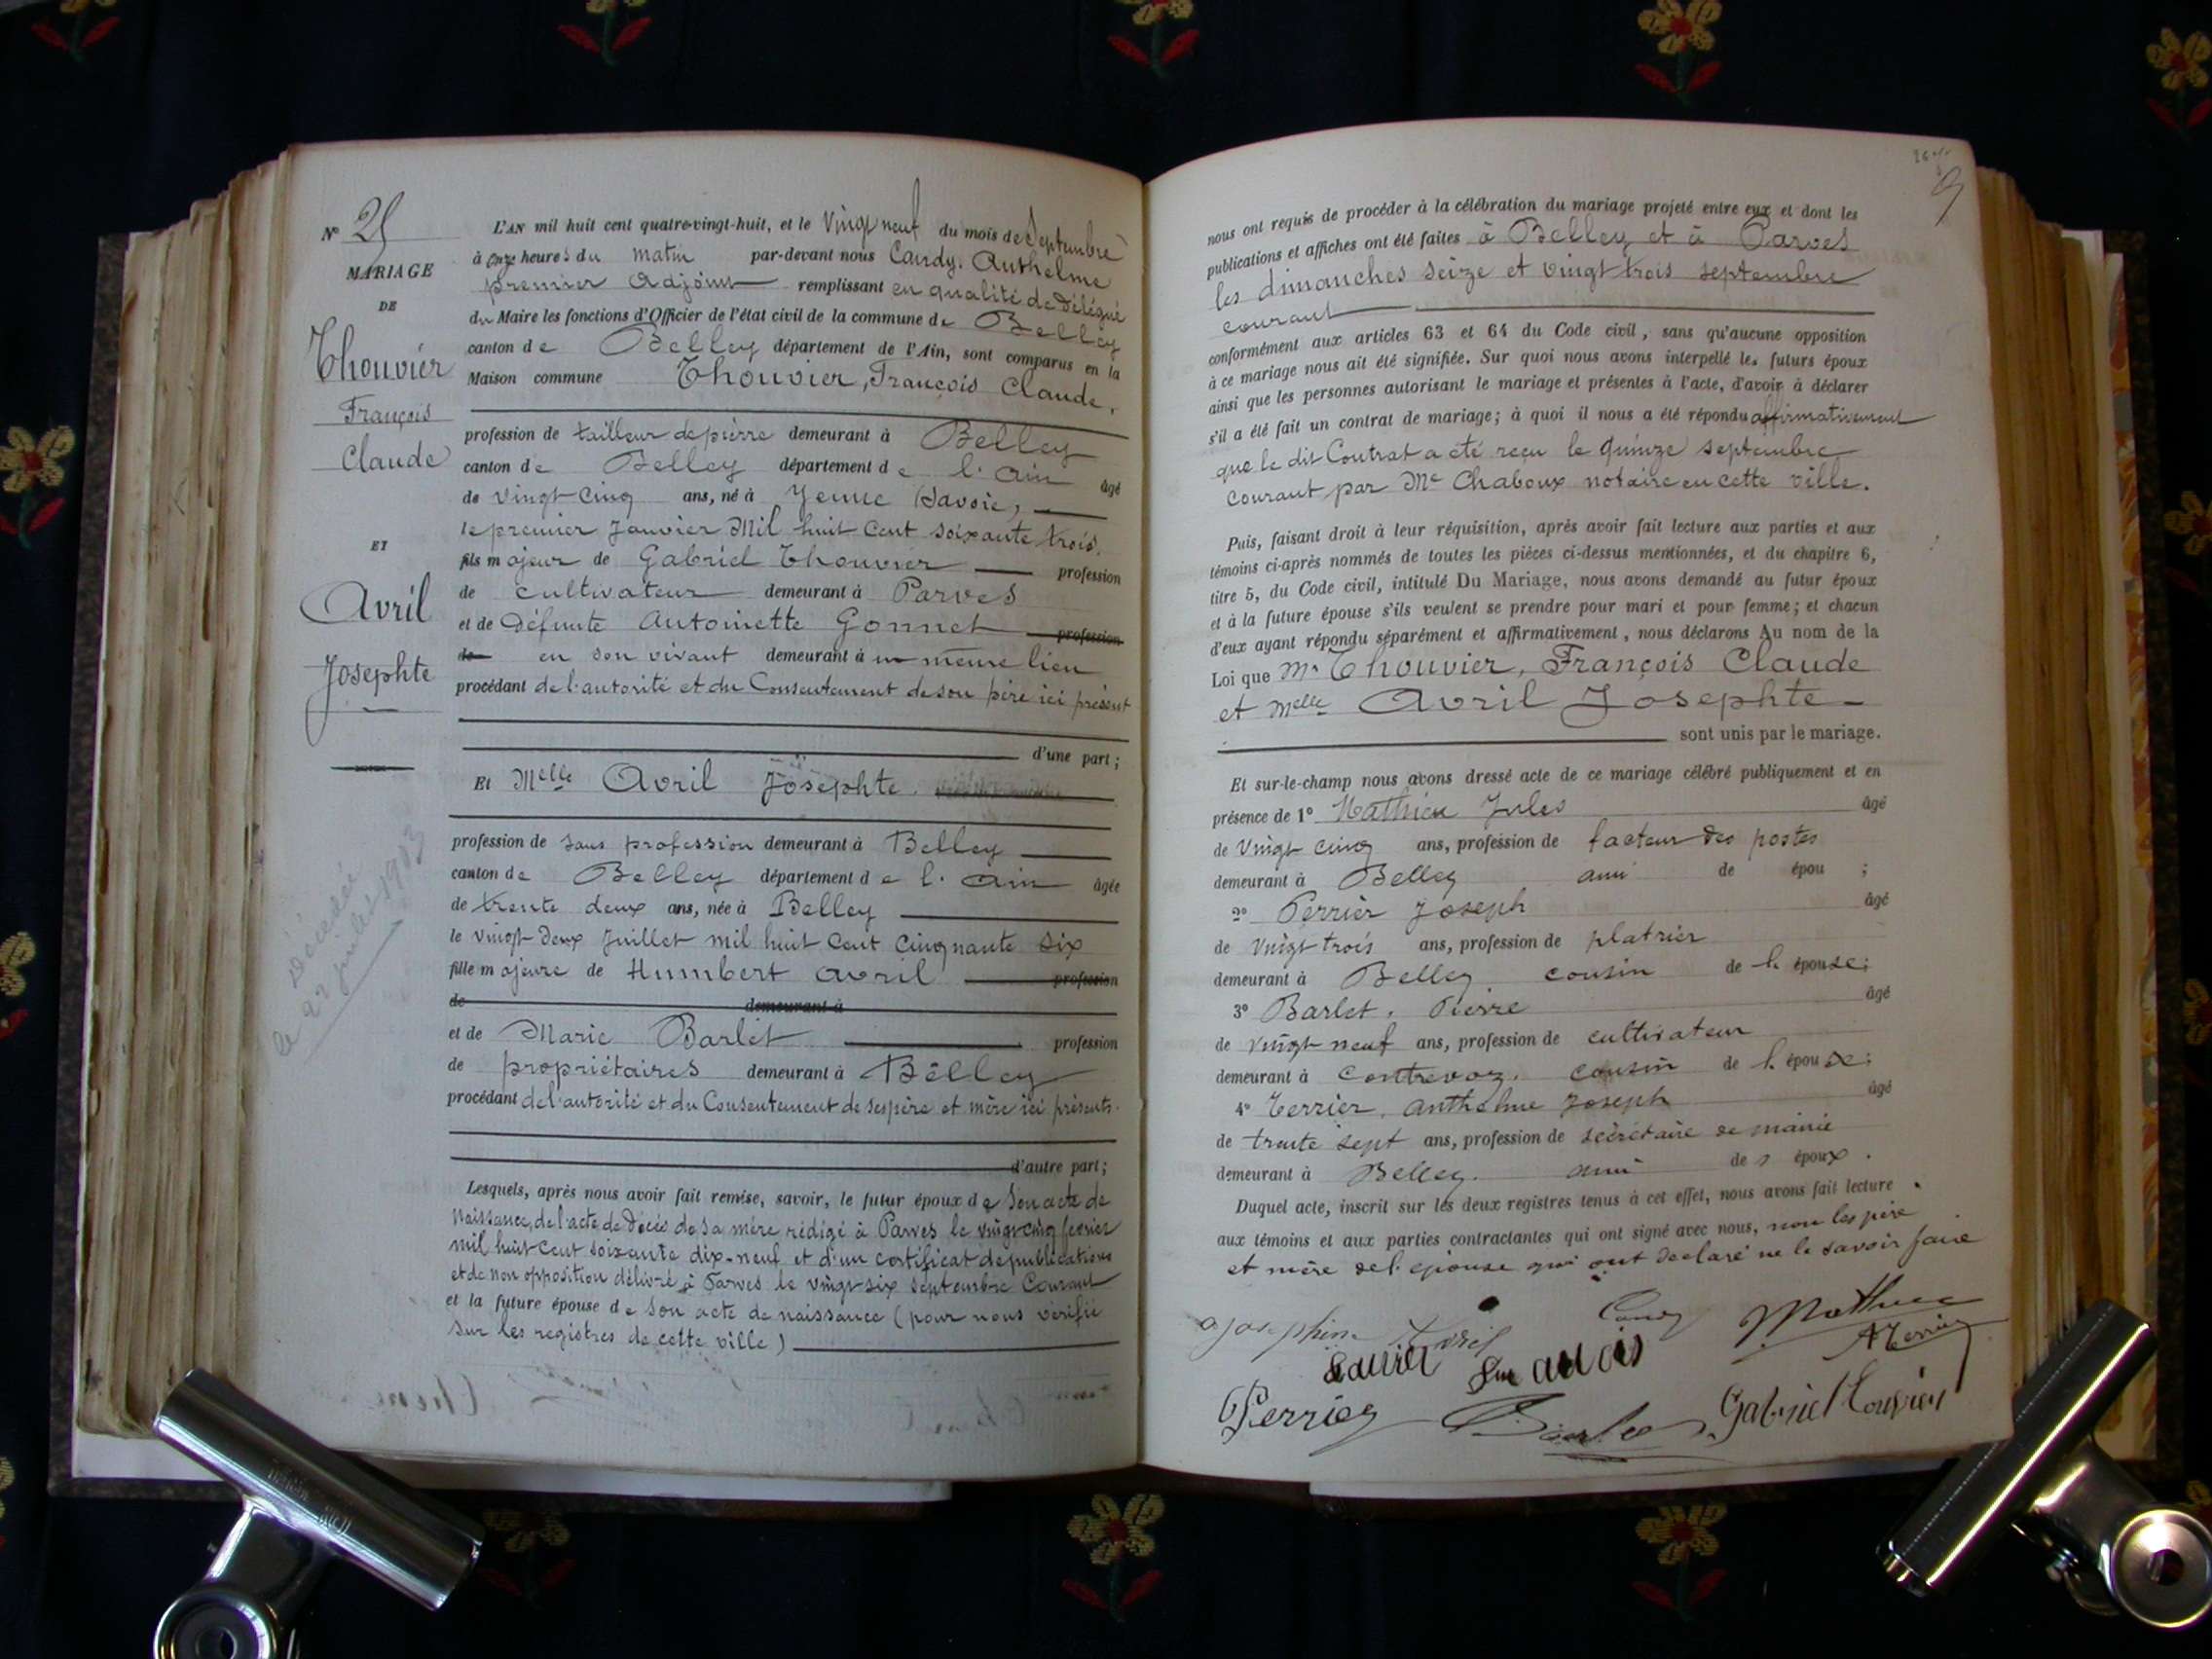 N° 25
MARIAGE
DE
Thouvier
François
Claude
ET
Avril
Josephte
Décédée
le 29 juillet 1903
L'AN mil huit cent quatre-vingt-huit, et le Vingt neuf du mois de Septembre
à onze heures du matin par-devant nous Candy. Anthelme
premier Adjoint remplissant en qualité de Délégué
du Maire les fonctions d'Officier de l'état civil de la commune de Belley
canton de Belley département de l'Ain, sont comparus en la
Maison commune Thouvier, François Claude,
profession de tailleur de pierre demeurant à Belley
canton de Belley département de l'ain âgé
de vingt-cinq ans, né à Yenne (Savoie)
le premier Janvier Mil huit Cent soixante trois.
fils majeur de Gabriel Thouvier profession
de cultivateur demeurant à Parves
et de Défunte Antoinette Gonnet profession
de en son vivant demeurant à même lieu
procédant de l'autorité et du Consentement de son père ici présent
d'une part;
Et Melle Avril Josephte.
profession de sans profession demeurant à Belley
canton de Belley département de l'ain âgée
de trente deux ans, née à Belley
le vingt-deux Juillet mil huit Cent Cinquante six
fille majeure de Humbert Avril profession
de demeurant à
et de Marie Barlet profession
de propriétaires demeurant à Belley
procédant de l'autorité et du Consentement de ses père et mère ici présents.
d'autre part;
Lesquels, après nous avoir fait remise, savoir, le futur époux de Son acte de
Naissance, de l'acte de Décès de sa mère rédigé à Parves le vingt-cinq fevrier
mil huit cent soixante dix-neuf et d'un certificat de publications
et de non opposition délivré à Parves le vingt-six septembre Courant
et la future épouse de Son acte de naissance (pour nous vérifié
sur les registres de cette ville)
9
nous ont requis de procéder à la célébration du mariage projeté entre eux et dont les
publications et affiches ont été faites à Belley et à Parves
les dimanches seize et vingt trois septembre
courant
conformément aux articles 63 et 64 du Code civil, sans qu'aucune opposition
à ce mariage nous ait été signifiée. Sur quoi nous avons interpellé les futurs époux
ainsi que les personnes autorisant le mariage et présentes à l'acte, d'avoir à déclarer
s'il a été fait un contrat de mariage; à quoi il nous a été répondu affirmativement
que le dit Contrat a été reçu le quinze septembre
courant par Me Chaboux notaire en cette ville.
Puis, faisant droit à leur réquisition, après avoir fait lecture aux parties et aux
témoins ci-après nommés de toutes les pièces ci-dessus mentionnées, et du chapitre 6,
titre 5, du Code civil, intitulé Du Mariage, nous avons demandé au futur époux
et à la future épouse s'ils veulent se prendre pour mari et pour femme; et chacun
d'eux ayant répondu séparément et affirmativement, nous déclarons Au nom de la
Loi que Mr Thouvier, François Claude
et Melle Avril Josephte
sont unis par le mariage.
Et sur-le-champ nous avons dressé acte de ce mariage célébré publiquement et en
présence de 1° Mathieu Jules âgé
de Vingt cinq ans, profession de facteur des postes
demeurant à Belley ami de épou ;
2° Perrier Joseph âgé
de vingt trois ans, profession de platrier
demeurant à Belley cousin de l'épouse;
3° Barlet. Pierre âgé
de vingt-neuf ans, profession de cultivateur
demeurant à Contrevoz. cousin de l'épouse;
4° Terrier. Anthelme Joseph âgé
de trente sept ans, profession de secrétaire de mairie
demeurant à Belley. ami des époux.
Duquel acte, inscrit sur les deux registres tenus à cet effet, nous avons fait lecture
aux témoins et aux parties contractantes qui ont signé avec nous, non les père
et mère de l'épouse qui ont déclaré ne le savoir faire
Josephine Avril Candy Mathieu
ATerrier
Perrier Barlet Gabriel Touvier